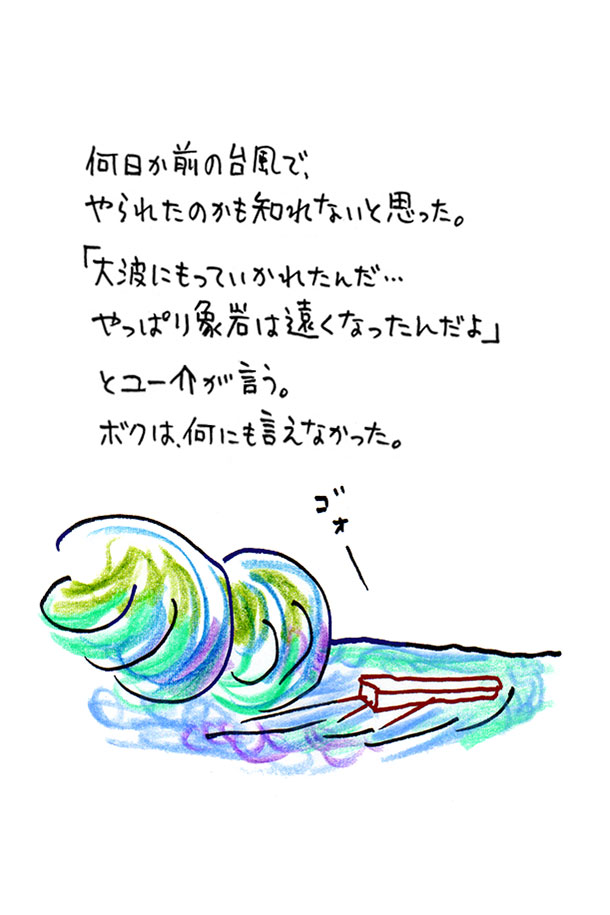 何日か前の台風で、
やられたのかも知れないと思った。
「大波にもっていかれたんだ…
やっぱり象岩は遠くなったんだよ」
とユー介が言う。
ボクは、何にも言えなかった。
ゴォー